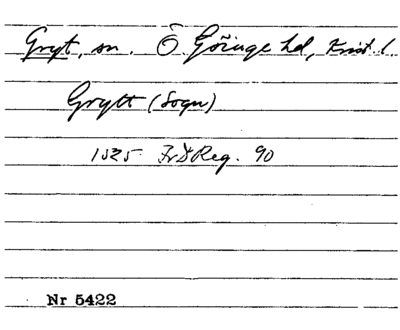 Gryt, sn. Ö Göinge hd, Krist. l
Grytt (Sogn)
1525 Fr I Reg. 90
Nr 5422